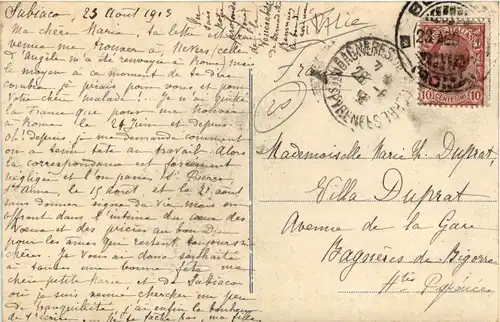 Subiaco, 23 août 1913
Ma chère Marie, ta lettre est
venue me trouver à Nevers, celle
d'Angèle m'a été renvoyée à Rome, mais
le moyen à ce moment de te dire
combien je priais pour vous et pour
votre chère malade! .. Je n'ai quitté
la France que pour me trouver
à Rome le 24 juin et depuis
ô! depuis, je me demande comment
on a tenu tête au travail. Alors
la correspondance est forcément
négligée et l'on passe St Pierre,
Ste Anne, le 15 août, et le 21 août
sans donner signe de vie mais en
offrant dans l'intime du cœur des
vœux et des prières au bon Dieu
pour les âmes que restent toujours si
chères. Je vous ai donc souhaité
à toutes une bonne fête, ma
chère petite Marie, et de Subiaco
où je suis venue chercher un peu
de tranquillité, j'ai enfin le bonheur
de t'écrire
ma fille
Mademoiselle Marie Th. Duprat,
Villa Duprat
Avenue de la Gare
Bagnères de Bigorre
Htes Pyrénées
BAGNÈRES-DE-
HTES PYRÉNÉES
10 CENTESIMI 10